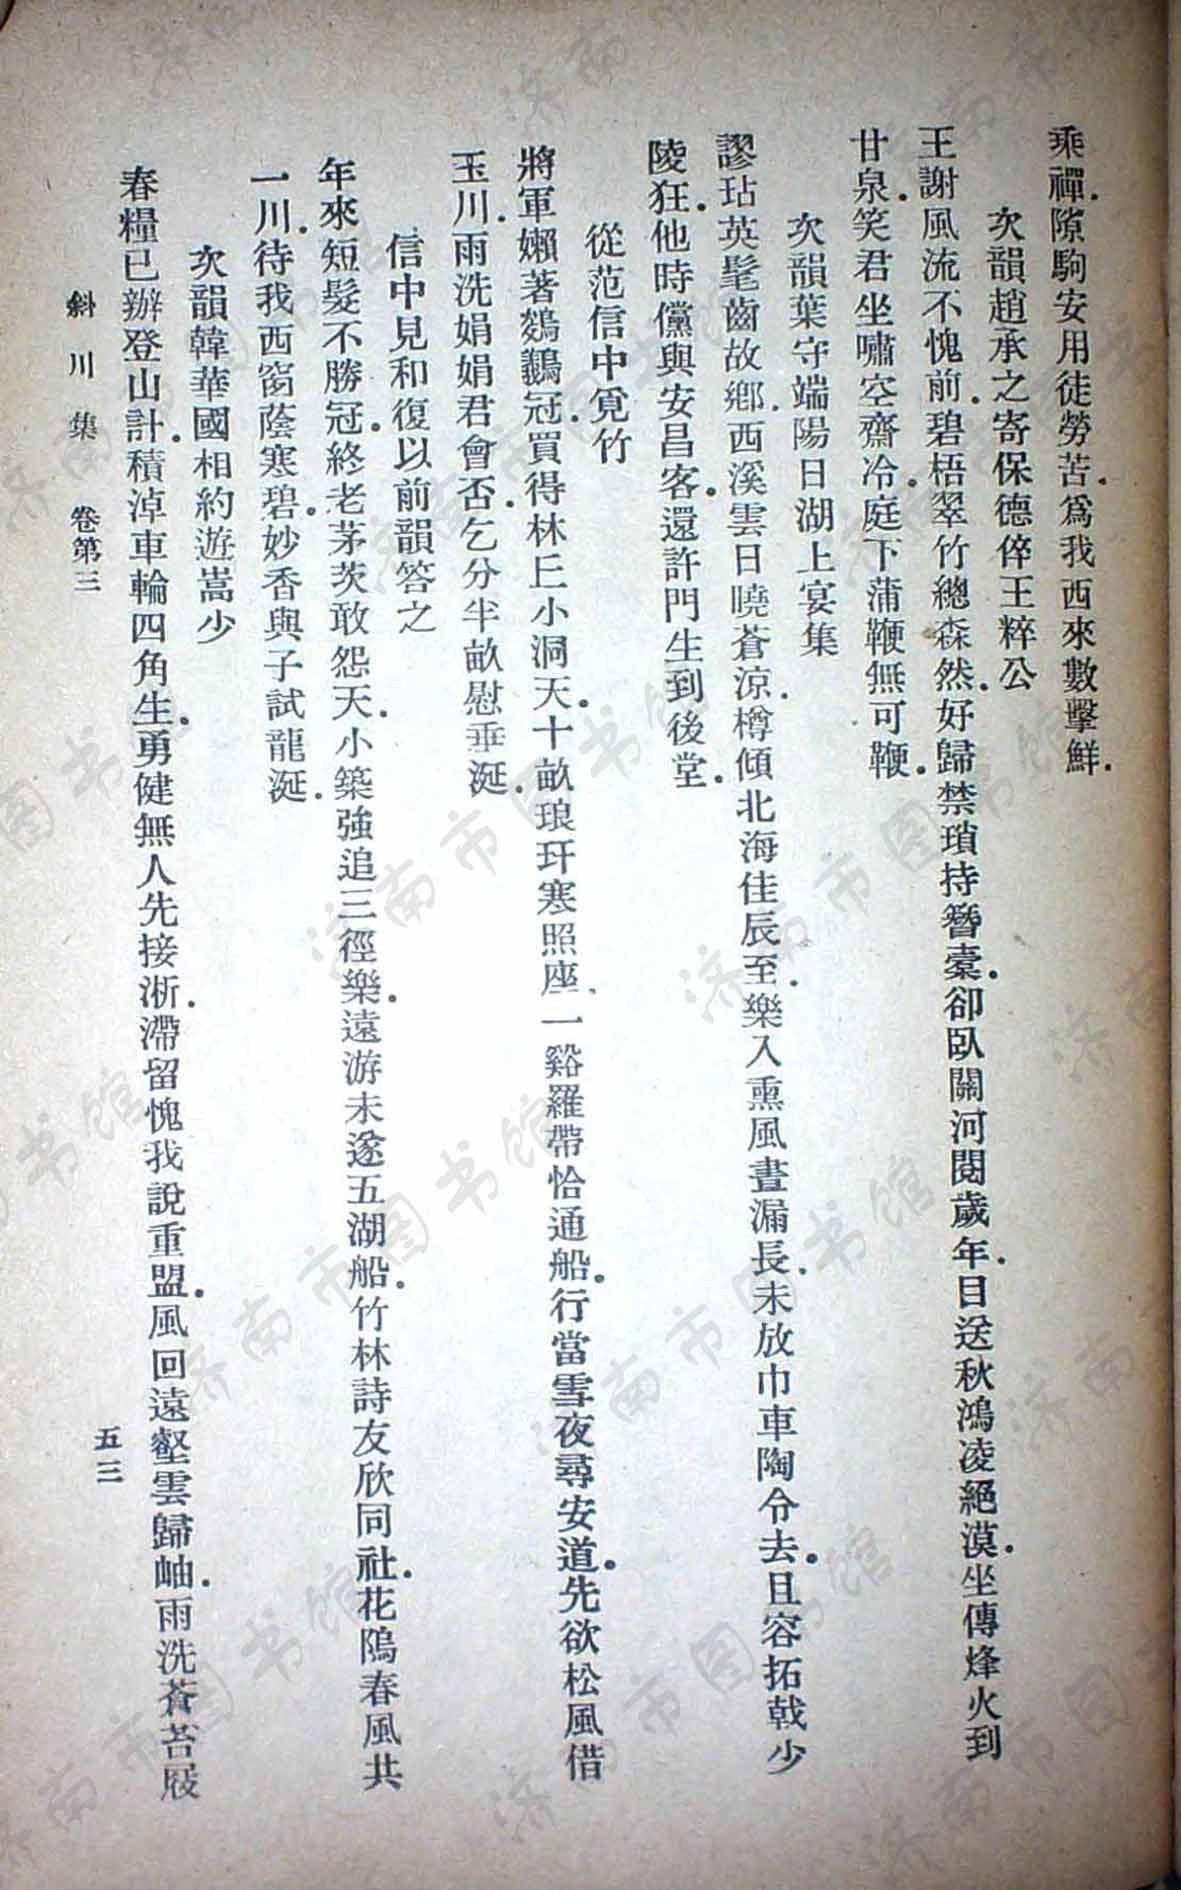 乘禪．隙駒安用徒勞苦．爲我西來數擊鮮．
次韻趙承之寄保德倅王粹公
王謝風流不愧前．碧梧翠竹總森然．好歸禁瑣持簪橐．卻臥關河閱歲年．目送秋鴻凌絕漠．坐傳烽火到
甘泉．笑君坐嘯空齋冷．庭下蒲鞭無可鞭．
次韻葉守端陽日湖上宴集
謬玷英髦齒故鄉．西溪雲日曉蒼涼．樽傾北海佳辰至．樂入熏風晝漏長．未放巾車陶令去．且容拓戟少
陵狂．他時儻與安昌客．還許門生到後堂．
從范信中覓竹
將軍嬾著鵕鸃冠．買得林丘小洞天．十畝琅玕寒照座．一谿羅帶恰通船．行當雪夜尋安道．先欲松風借
玉川．雨洗娟娟君會否．乞分半畝慰垂涎．
信中見和復以前韻答之
年來短髮不勝冠．終老茅茨敢怨天．小築強追三徑樂．遠游未遂五湖船．竹林詩友欣同社．花隖春風共
一川．待我西窗蔭寒碧．妙香與子試龍涎．
次韻韓華國相約遊嵩少
春糧已辦登山計．積淖車輪四角生．勇健無人先接淅．滯留愧我說重盟．風回遠壑雲歸岫．雨洗蒼苔屐
斜川集　卷第三　五三
济南市图书馆